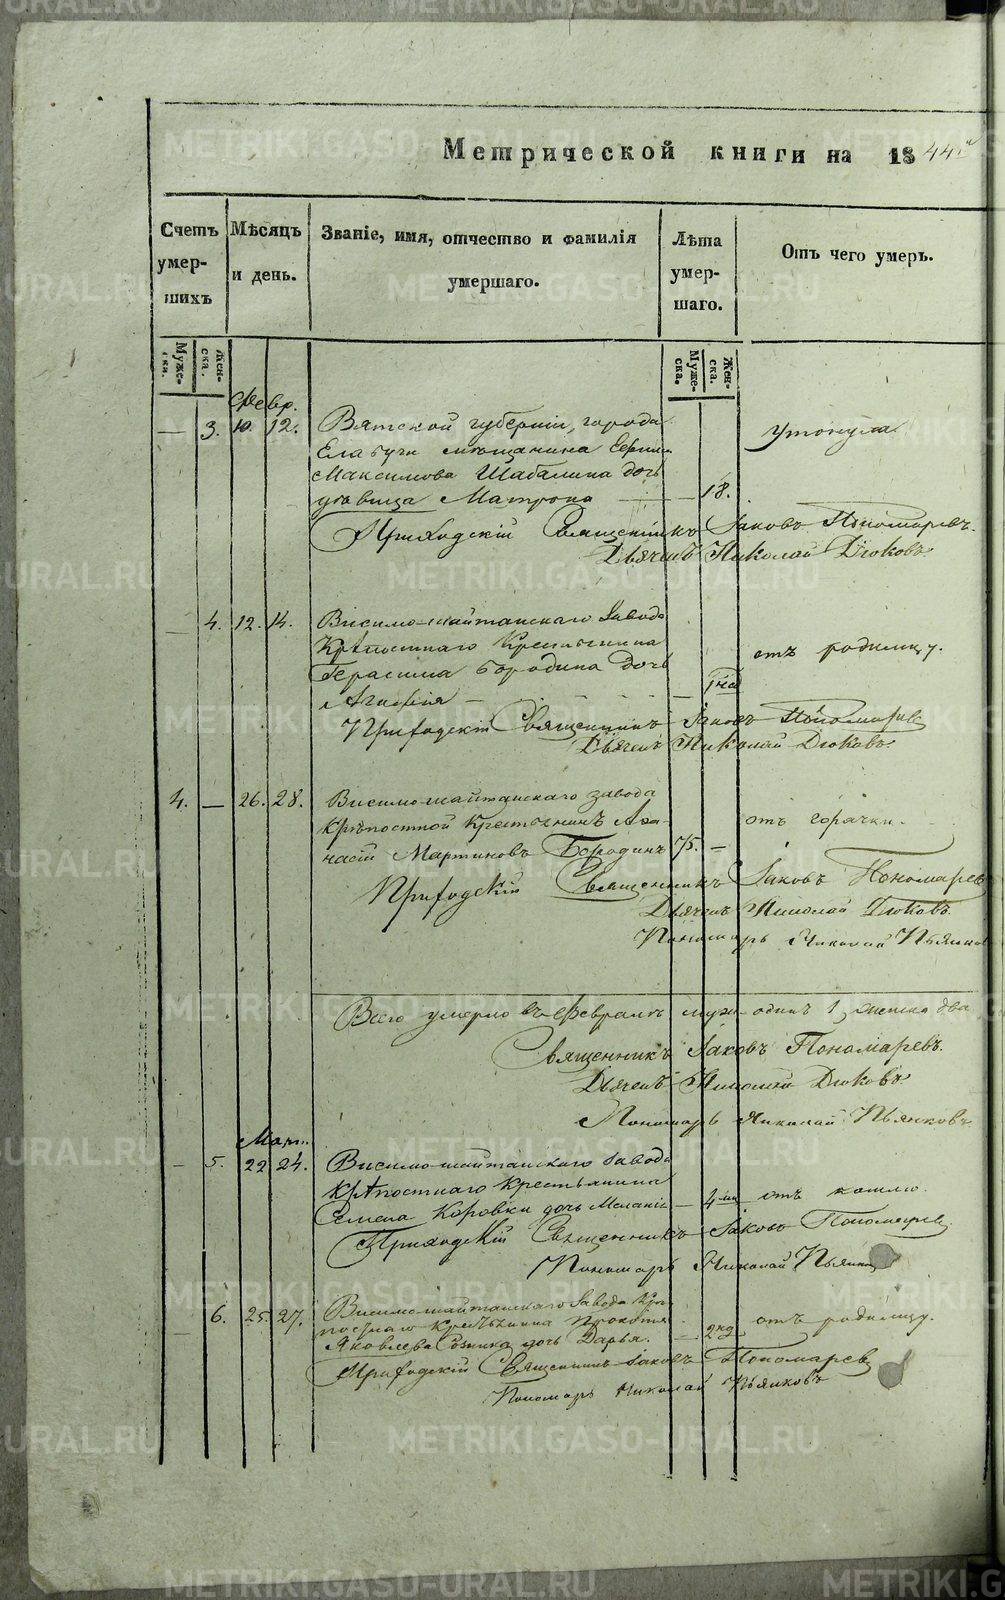 Метрической книги на 1844й
Счетъ умер- шихъ
Мѣсяцъ и день.
Званіе, имя, отчество и фамилія умершаго.
Лѣта умер- шаго.
Отъ чего умеръ.
Муже- ски.
Жен- ска.
Муже- ска.
Жен- ска.
Февр.
— 3. 10. 12. Вятской губерніи, города
Елабуги мѣщанина
Максимова Шабалина дочь
дѣвица Матрона — 18. утонула
Приходскій Священникъ Іаковъ Пономаревъ.
Дьячекъ Николай Дюковъ
— 4. 12. 14. Висимо-шайтанскаго Завода
Крѣпостнаго Крестьянина
Герасима Бородина дочь отъ родимцу.
Агафія —
Приходскій Священникъ Іаковъ Пономаревъ
Дьячекъ Николай Дюковъ
4. — 26. 28. Висимо-шайтанскаго завода
крѣпостной крестьянинъ Афа-
насій Мартиновъ Бородинъ 75. — отъ горячки.
Приходскій Священникъ Іаковъ Пономаревъ
Дьячекъ Николай Дюковъ.
Пономарь Николай Пьянков
Всего умерло въ Февралѣ муж. одинъ 1, женска два
Священникъ Іаковъ Пономаревъ.
Дьячекъ Николай Дюковъ
Пономарь Николай Пьянковъ
Март.
— 5. 22 24. Висимо-шайтанскаго Завода
крѣпостнаго крестьянина
Семена Коровки дочь Меланія — 4 отъ кашлю.
Приходскій Священникъ Іаковъ Пономаревъ
Пономарь Николай Пьянков
— 6. 25. 27. Висимо-шайтанскаго Завода Крѣ-
постнаго крестьянина Прокопія
Яковлева дочь Дарья. — 2 нд отъ родимцу.
Приходскій Священникъ Іаковъ Пономаревъ
Пономарь Николай Пьянковъ
METRIKI.GASO-URAL.RU